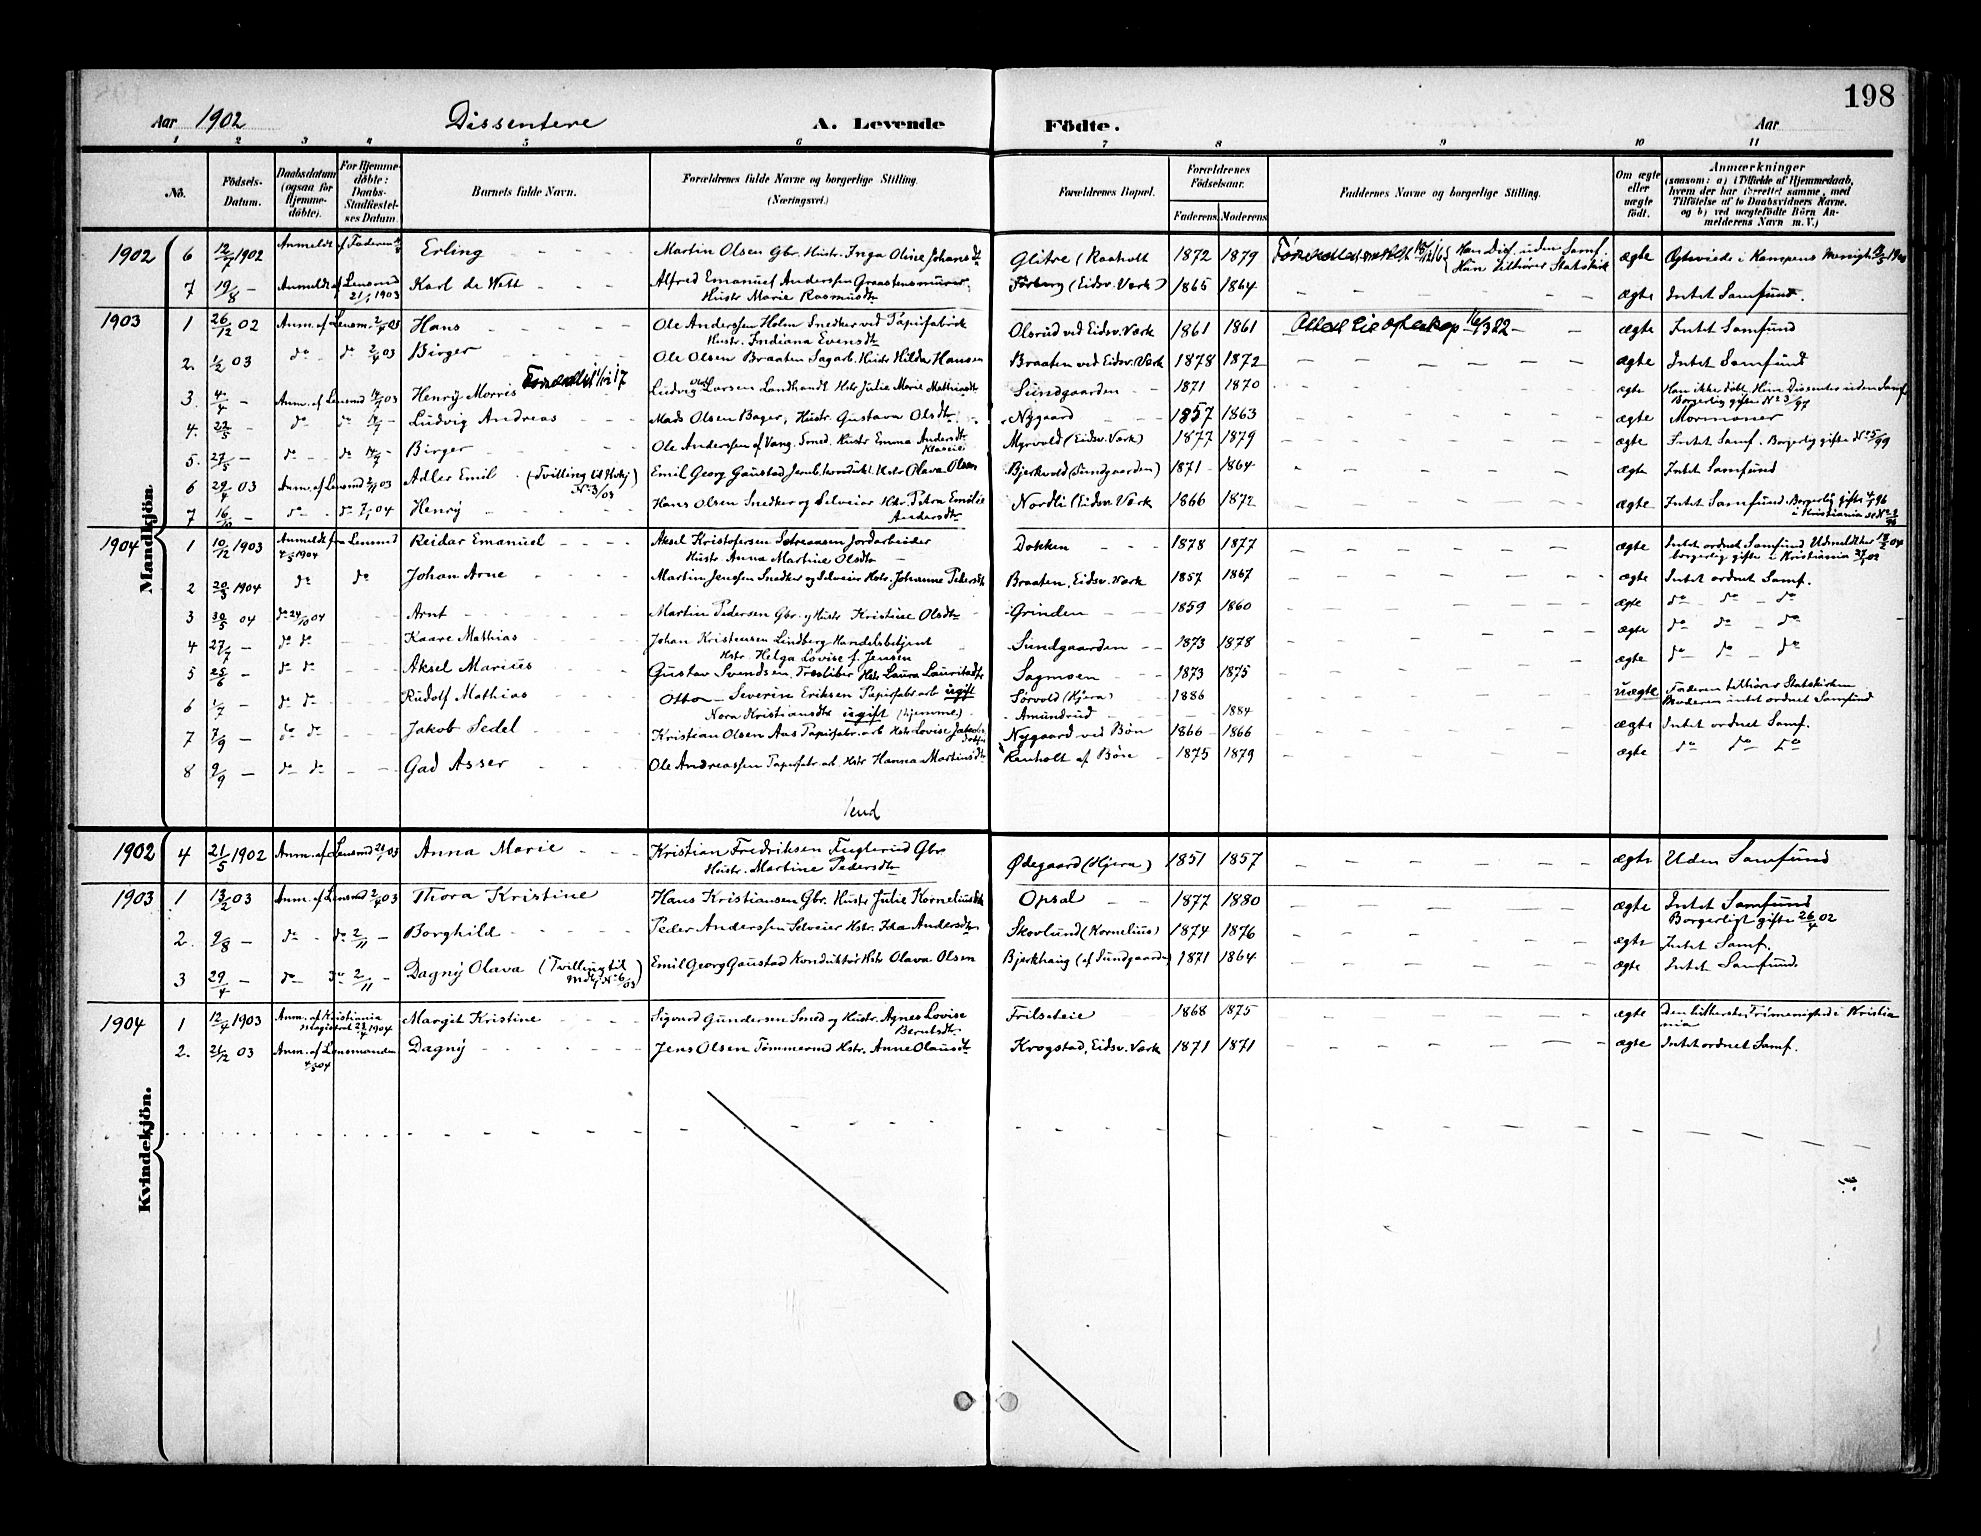 198
Aar 1902 Dissentere A. Levende Födte. Aar
1 2 3 4 5 6 7 8 9 10 11
No. Födsels-Datum. Daabsdatum (ogsaa for Hjemme-döbte). For Hjemme-döbte: Daabs-Stadfestel-ses Datum. Barnets fulde Navn. Forældrenes fulde Navne og borgerlige Stilling. (Næringsvei.) Forældrenes Bopæl. Forældrenes Födselsaar. Faderens Moderens Faddernes Navne og borgerlige Stilling. Om ægte eller uægte födt. Anmærkninger (saasom: a) i Tilfælde af Hjemmedaab, hvem der har forrettet samme, med Tilföielse af to Daabsvidners Navne. og b) ved uægtefödte Börn An-melderens Navn m. V.)
Mandkjön.
1902 6 12/7 1902 Anmeldt af Faderen Erling Martin Olsen Gbr. Hustr. Inga Oline Johansdt Glitre (Raaholt 1872 1879 Han Dis. uden Samf. Hun tilhører Statskirk ægte
7 19/8 – Anmeldt af Lensmd 21/1 1903 Karl de Wett Alfred Emanuel Anderssen Graastensmurer
Hustr Marie Rasmusdt (Eidsv. Værk) 1865 1864 ægte Intet Samfund.
1903 1 26/12 02 Anm. af Lensm. 2/4 03 Hans Ole Anderssen Holm Snedker ved Papirfabrik
Hustr. Indiana Evensdt Olsrud ved Eidsv. Værk 1861 1861 ægte Intet Samfund
2. 1/2 03 do do 2/4 03 Birger Ole Olsen Braaten Sagarb. Hustr Hilda Hansen Braaten ved Eidsv. Værk 1878 1872 ægte Intet Samfund
3. 4/4 – Anm. af Lensmd 14/7 03 Henrÿ Morris Ludvig Larsen Landhandl Hstr Julie Marie Mathiasdt Sundgaarden 1871 1870 ægte Han ikke døbt Hun Dissenter uden Samf
Borgerlig gifte No 3/97
4. 22/5 – do do 14/7 – Ludvig Andreas Mads Olsen Bager, Hustr Gustava Olsdt Nygaard 1857 1863 ægte Mormoner
5. 27/5 – do do 14/7 – Birger Ole Anderssen af Vang. Smed. Hustr Emma Andersdt Myrvold (Eidsv. Værk) 1877 1879 ægte Intet Samf. Borgerlig gifte No 5/99
6 29/4 03 Anm. af Lensmd 2/11 03 Adler Emil (Tvilling til Kvkj No 3/03 Emil Georg Gaustad Jernb. konduktr. Hstr Olava Olsen (Sundgaarden) 1871 1864 ægte Intet Samfund
7 16/10 do do 7/1 04 Henrÿ Hans Olsen Snedker og Selveier Hstr. Petra Emilie
Andersdt Nordli (Eidsv. Værk 1866 1872 ægte Intet Samfund Borgerlig gifte 4/1 96
i Kristiania
1904 1 10/12 1903 Anmeldt fra Lensmd 4/5 1904 Reidar Emanuel Aksel Kristofersen Jordarbeider
Hustr Anna Martine Olsdt Dokken 1878 1877 ægte Intet ordnet Samfund Udmeldte 18/2 04
borgerlig gifte i Kristiania 27/1 02
2 20/3 1904 do do Johan Arne Martin Jenssen Snedker og Selveier Hstr. Johanne Pedersdt Braaten, Eidsv. Værk 1857 1867 ægte Intet ordnet Samf.
3 30/5 04 do 24/10 04 Arnt Martin Pedersen Gbr. og Hustr Kristine Olsdt Grinden 1859 1860 ægte do do do
4 27/7 – do do Kaare Mathias Johan Kristensen Lindberg Handelsbetjent
Hstr. Helga Lovise f. Jensen Sundgaarden 1873 1878 ægte do do do
5 25/6 – do do Aksel Marius Gustav Svendsen, Træsliber Hstr Laura Lauritsdt Sagmoen 1873 1875 ægte do do do
6 1/7 – do do Rudolf Mathias Otto Severin Eriksen Papirfabr. arb ugift
Nora Kristiansdt ugift (hjemme) Sørvold (Hjera) 1886
Amundrud 1884 uægte Faderen tilhører Statskirken
Moderen intet ordnet Samfund
7 7/9 – do do Jakob Sedel Kristian Olsen Aas Papirfabr. arb Hstr Lovise Nygaard ved Bön 1866 1866 ægte Intet ordnet Samf.
8 9/9 – do do Gad Asser Ole Andreassen Papirfabr. arb Hstr Hanna Martinsdt Renholt af Böne 1875 1879 ægte do do do
Vend
Kvindekjön.
1902 4 21/5 1902 Anm. af Lensmd 21/1 03 Anna Marie Kristian Fredriksen Fuglerud Gbr.
Hustr. Martine Pedersdt Ødegaard (Hjera) 1851 1857 ægte Uden Samfund
1903 1 13/2 03 Anm. af Lensmd 2/4 03 Thora Kristine Hans Kristiansen Gbr. Hustr Julie Korneliusdt Opsal 1877 1880 ægte Intet Samfund
Borgerligt gifte 26/4 02
2. 9/8 – do do 2/11 Borghild Peder Anderssen Selveier Hstr. Ida Andersdt Skovlund (Kornelius) 1874 1876 ægte Intet Samf.
3 29/4 – do do 2/11 Dagnÿ Olava (Tvilling til Mdkj No 6/03) Emil Georg Gaustad Konduktør Hstr Olava Olsen Bjerkhaug (af Sundgaarden) 1871 1864 ægte Intet Samfund
1904 1 12/4 1903 Anm. af Kristiania Magistrat 23/4 1904 Margit Kristine Sigvard Gundersen Smed og Hustr. Agnes Lovise
Berntsdt Frilseteie 1868 1875 ægte Den lutherske Frimenighed i Kristia
nia
2. 21/2 03 Anm. af Lensmanden 4/5 04 Dagnÿ Jens Olsen Tømmermd Hstr. Anne Olausdt Krogstad, Eidsv. Værk 1871 1871 ægte Intet ordnet Samf.